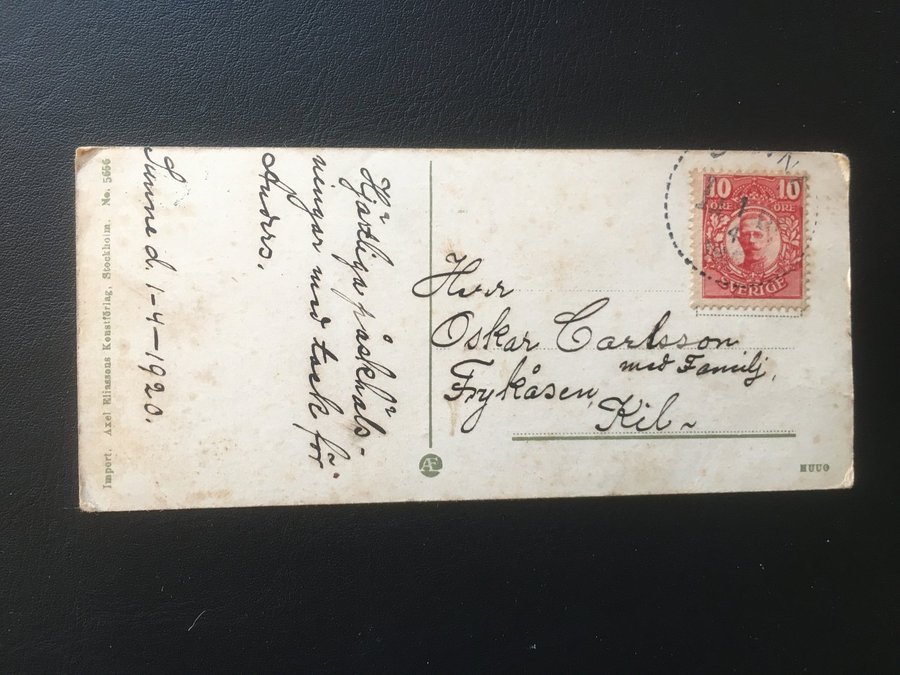 Hjärtliga påskhäls-
ningar med tack för
Anders.
Sunne d. 1-4-1920.
Import. Axel Eliassons Konstförlag, Stockholm. No. 5656
10 10
ÖRE ÖRE
SVERIGE
Herr
Oskar Carlsson
med Familj,
Frykåsen,
Kil
Æ